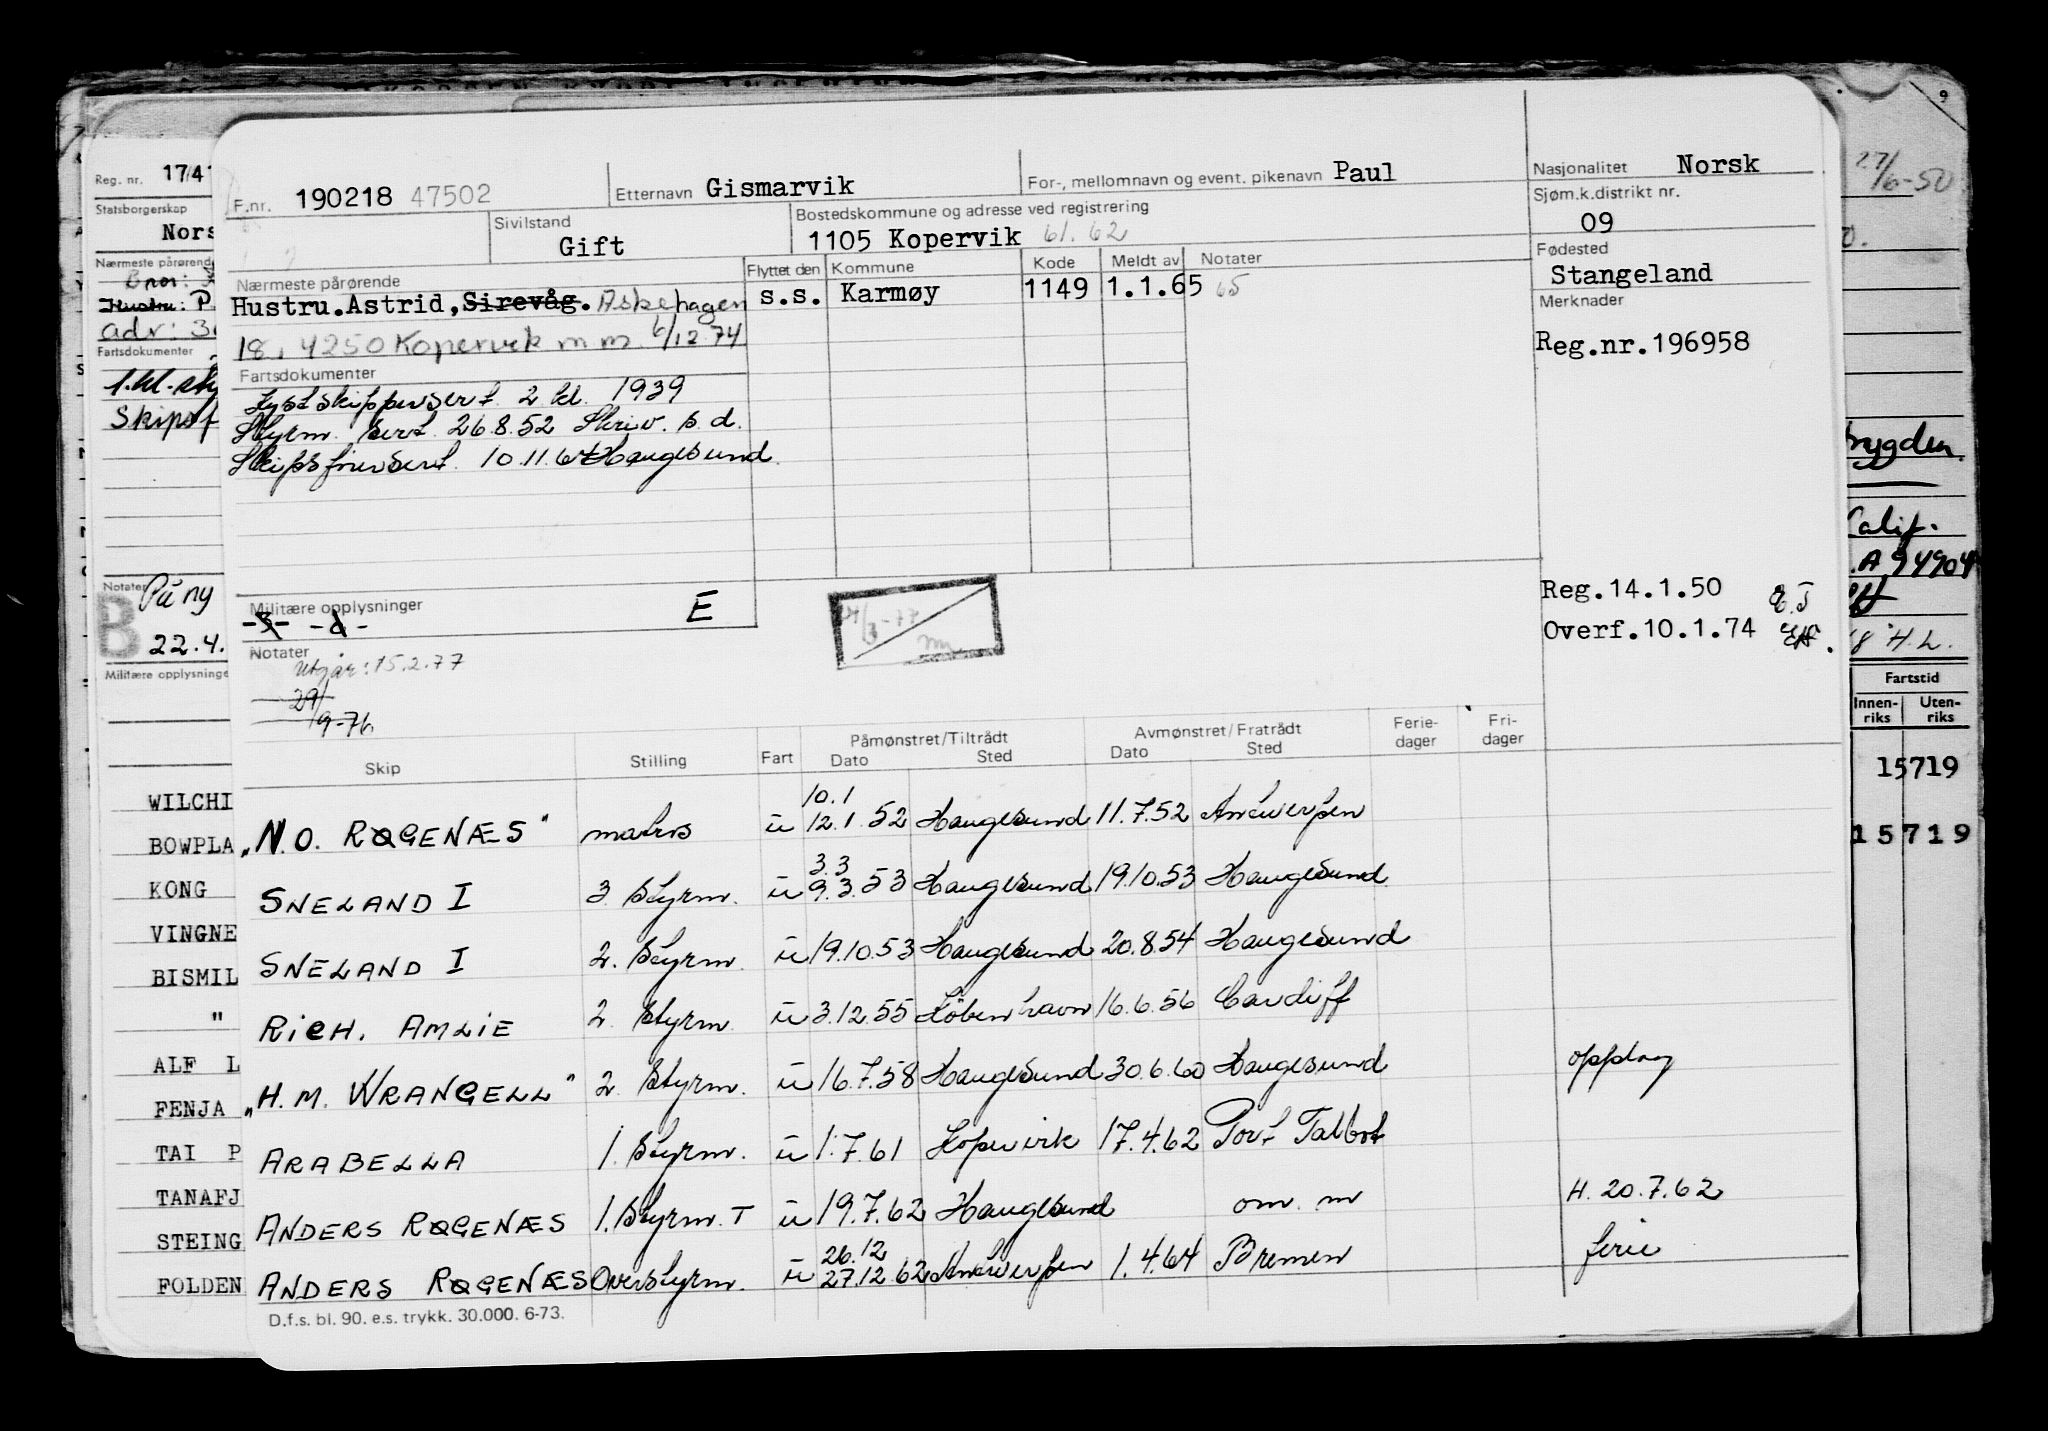 9
27/6-50
Reg. nr. 1741
F.nr. 190218 47502
Etternavn Gismarvik
For-, mellomnavn og event. pikenavn Paul
Nasjonalitet Norsk
Statsborgerskap
Nors
Sivilstand
Gift
Bostedskommune og adresse ved registrering
1105 Kopervik 61. 62
Sjøm.k.distrikt nr.
09
Fødested
Stangeland
Nærmeste pårørende
Bror:
Hustru: P
adr: 3
Nærmeste pårørende
Hustru.Astrid, Sirevåg. Askehagen
18, 4250 Kopervik m m. 6/12.74
Flyttet den Kommune Kode Meldt av Notater
s.s. Karmøy 1149 1.1.65 65
Merknader
Reg.nr.196958
Fartsdokumenter
1.kl.sty
Skipsf
Fartsdokumenter
Kystskippersert. 2 kl. 1939
Styrm. sert. 26.8.52 Skriv. s.d.
Skipsførersert. 10.11.64 Haugesund
Bygden.
Calif.
.A 94904
8 H.L.
Notater På ny
B 22.4.
Militære opplysninge
Militære opplysninger
E
Notater
Utgår: 15.2.77
29/9-76
/3-77
Reg.14.1.50
Overf.10.1.74
Fartstid
Innen-riks Uten-riks
15719
15719
Skip Stilling Fart Påmønstret/Tiltrådt Dato Sted Avmønstret/Fratrådt Dato Sted Ferie-dager Fri-dager
WILCHI
BOWPLA
KONG
VINGNE
BISMIL
"
ALF L
FENJA
TAI P
TANAFJ
STEING
FOLDEN
„N.O. ROGENÆS" matros u 10.1 12.1.52 Haugesund 11.7.52 Antwerpen
SNELAND I 3 Styrm. u 3.3 9.3.53 Haugesund 19.10.53 Haugesund
SNELAND I 2. Styrm. u 19.10.53 Haugesund 20.8.54 Haugesund
RICH. AMLIE 2 Styrm. u 3.12.55 København 16.6.56 Cardiff
„H.M. WRANGELL" 2. Styrm. u 16.7.58 Haugesund 30.6.60 Haugesund opplag
ARABELLA 1. Styrm. u 1.7.61 Kopervik 17.4.62 Port Talbot
ANDERS ROGENÆS 1. Styrm. T u 19.7.62 Haugesund om. m H. 20.7.62
ANDERS ROGENÆS Overstyrm. u 26.12 27.12.62 Antwerpen 1.4.64 Bremen ferie
D.f.s. bl. 90. e.s. trykk. 30.000. 6-73.